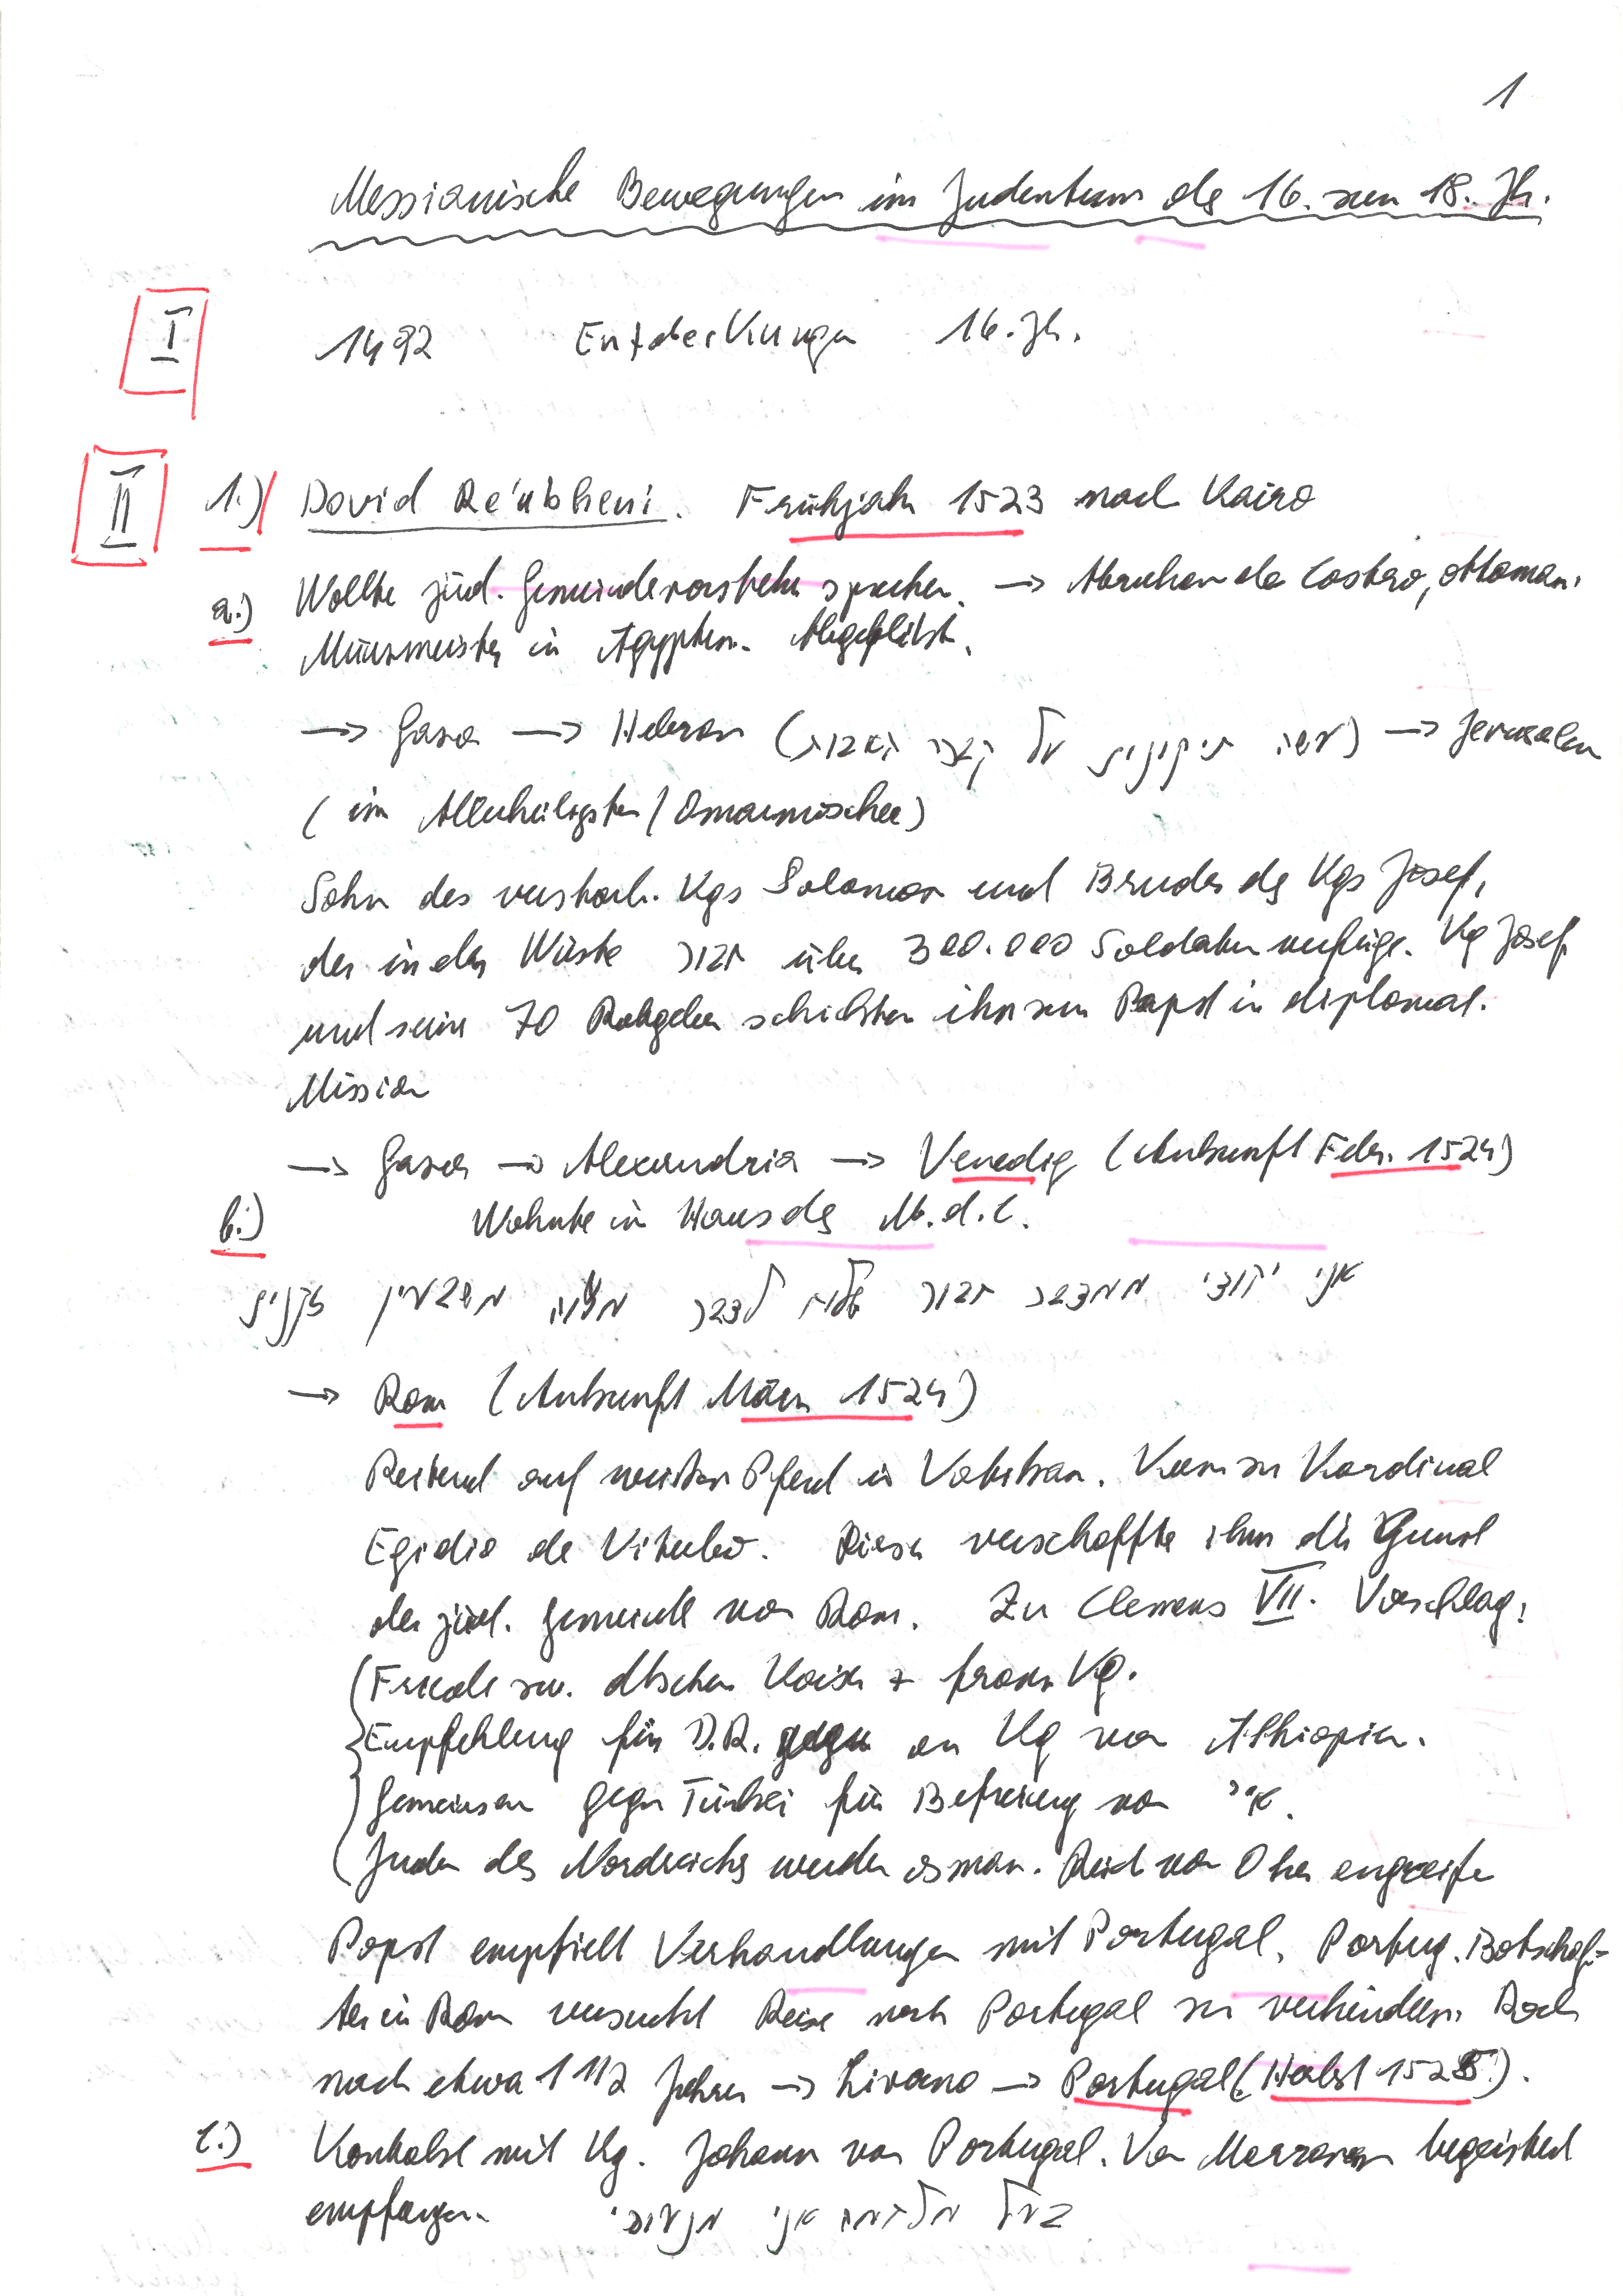 1
Messianische Bewegungen im Judentum des 16. zum 18. Jh.
I
1492 Entdeckungen 16. Jh.
II 1.) David Re'ubheni. Frühjahr 1523 nach Kairo
a.) Wollte jüd. Gemeindevorsteher sprechen. → Abraham de Castro, ottoman.
Münzmeister in Ägypten. Abgeblitzt.
→ Gaza → Hebron ( ) → Jerusalem
(im Allerheiligsten / Omarmoschee)
Sohn des verstorb. Kgs Solomon und Bruder des Kgs Josef,
der in der Wüste חבור über 300.000 Soldaten verfüge. Kg Josef
und seine 70 Ratgeber schickten ihn zum Papst in diplomat.
Mission
→ Gaza → Alexandria → Venedig (Ankunft Febr. 1524)
b.) Wohnte in Haus des M. d. C.
אני יהודי ממדבר חבור שלוח לדבר
→ Rom (Ankunft März 1524)
Reitend auf weißem Pferd in Vatikan. Kam zu Kardinal
Egidio de Viterbo. Dieser verschaffte ihm die Gunst
der jüd. Gemeinde von Rom. Zu Clemens VII. Vorschlag:
Friede zw. dtschen Kaiser + franz. Kg.
Empfehlung für D.R. an Kg von Äthiopien.
Gemeinsam gegen Türkei für Befreiung von א"י.
Juden des Nordreichs werden osman. Reich von Osten angreifen
Papst empfielt Verhandlungen mit Portugal. Portug. Botschaf-
ter in Rom versucht Reise nach Portugal zu verhindern. Doch
nach etwa 1 1/2 Jahren → Livorno → Portugal (Herbst 1525!).
c.) Kontakt mit Kg. Johann von Portugal. Von Marranen begeistert
empfangen.